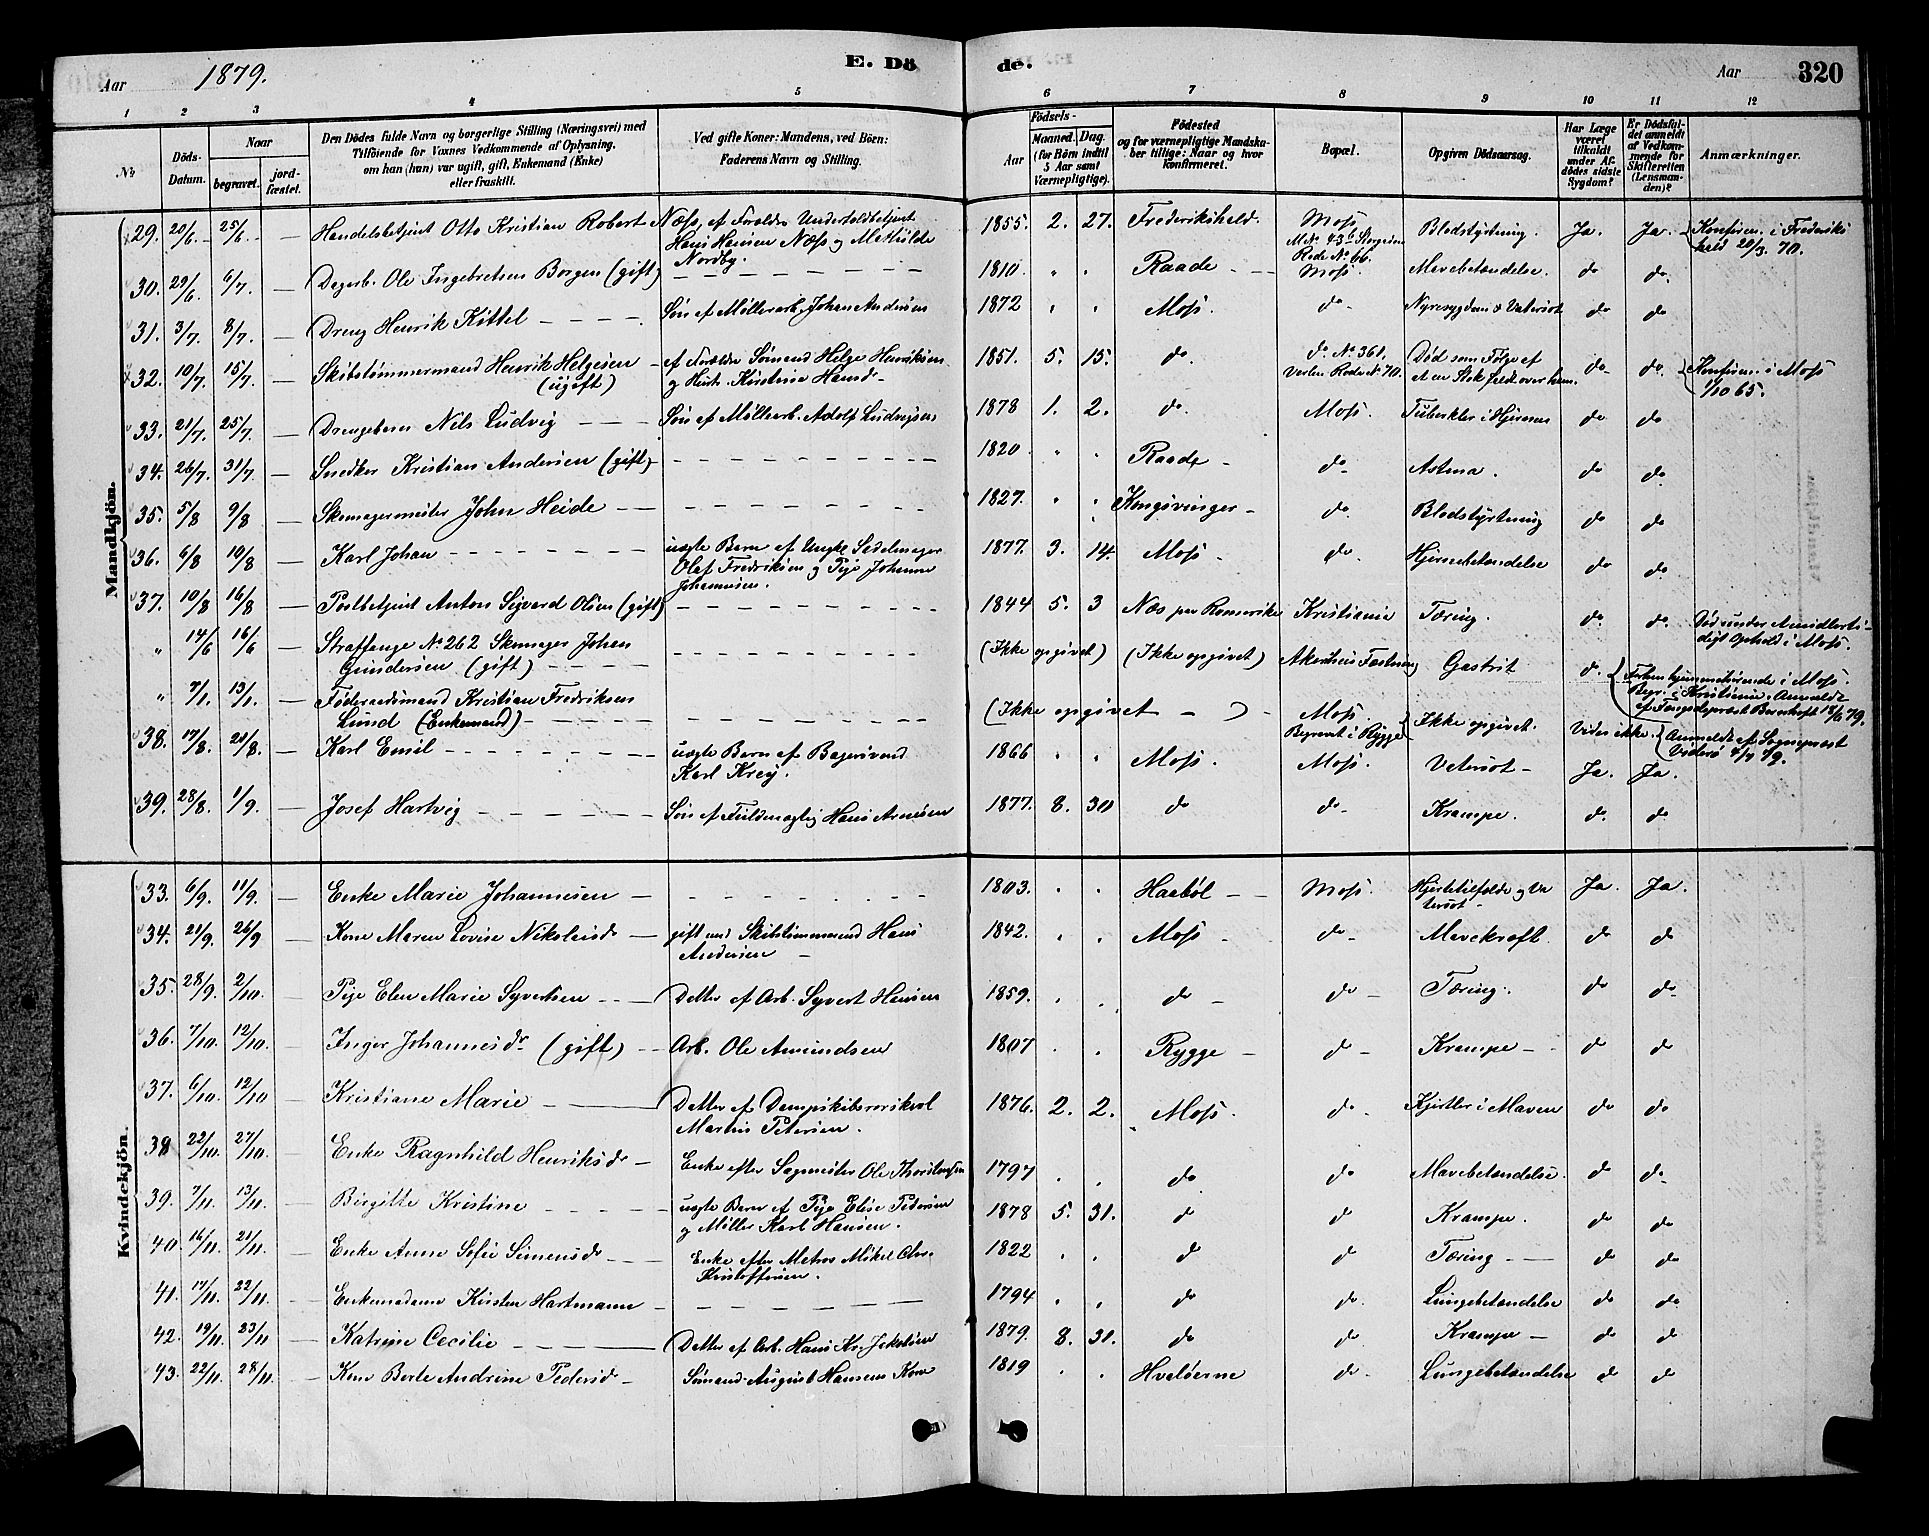 Aar 1879. E. Dö de. Aar 320
1 2 3 4 5 6 7 8 9 10 11 12
No
Döds-Datum.
Naar
begravet.
jord-fæstet.
Den Dödes fulde Navn og borgerlige Stilling (Næringsvei) med
Tilföiende for Voxnes Vedkommende af Oplysning,
om han (hun) var ugift, gift, Enkemand (Enke)
eller fraskilt.
Ved gifte Koner: Mandens, ved Börn:
Faderens Navn og Stilling.
Födsels-
Aar
Maaned. Dag.
(for Börn indtil
5 Aar samt
Værnepligtige).
Födested
og for værnepligtige Mandska-
ber tillige: Naar og hvor
konfirmeret.
Bopæl.
Opgiven Dödsaarsag.
Har Læge
været
tilkaldt
under Af-
dödes sidste
Sygdom?
Er Dödsfal-
det anmeldt
af Vedkom-
mende for
Skifteretten
(Lensman-
den)?
Anmærkninger.
Mandkjön.
29. 20/6. 25/6. — Handelsbetjent Otto Kristian Robert Næss, af Forældre Underfoldbetjent
Hans Hansen Næss og Mathilde
Nordby. 1855. 2. 27. Frederikshald. Moss
M.No 43b Storgaden
Rode No 66. Blodstyrtning. Ja. Ja. Konfirm. i Frederiks
hald 20/3. 70.
30. 29/6. 6/7. — Dagarb. Ole Ingebretsen Borgen (gift) 1810. " " Raade Moss. Mavebetændelse. do do.
31. 3/7. 8/7. — Dreng Henrik Kittel Søn af Møllerarb. Johan Andersen 1872 " " Moss. do Nyresygdom & Vatersot do do
32. 10/7. 15/7. — Skibstømmermand Henrik Helgesen
(ugift) af Forældre Sømand Helge Henriksen
og Hust. Kirstine Hansd. 1851. 5. 15. do. do. No 361.
Verlen Rode No 70. Død som Følge af
at en Stok faldt over ham. do do. Konfirm. i Moss
1/10 65.
33. 21/7. 25/7. — Drengebarn Nils Ludvig Søn af Møllearb. Adolf Ludvigsen 1878 1. 2. do. Moss. Tuberkler i Hjernen do do
34. 26/7. 31/7. — Snedker Kristian Andersen (gift) 1820 " " Raade do Astma. do do
35. 5/8 9/8 — Skomagermester John Heide 1827. " " Kongsvinger do. Blodstyrtning do do
36. 6/8 10/8 — Karl Johan uægte Barn af Ungk. Sadelmager
Olaf Fredriksen og Pige Johanne
Johannesen. 1877. 3. 14. Moss do. Hjernebetændelse do do.
37. 10/8 16/8 — Postbetjent Anton Sigvard Olsen (gift) 1844 5. 3 Næs paa Romerike Kristiania Tæring. do. do. Død under Amidlerti-
digt Ophold i Moss.
" 14/6 16/6 — Straffange No 262 Skomager Johan
Gundersen (gift) (Ikke opgivet) (Ikke opgivet) Akershus Fæstning Gastrit do. Forhen hjemmehørende i Moss.
Begr. i Kristiania. Anmeldt
af Fængselspræst Bernhoft 18/6 79.
" 7/1. 13/1. — Føderaadsmand Kristian Fredriksen
Lund (Enkemand) (Ikke opgivet) Moss
Begravet i Rygge Ikke opgivet. Vides ikke. Anmeldt af Sognepræst
4/9 79.
38. 17/8. 21/8. — Karl Emil uægte Barn af Bagersvend
Karl Krey. 1866 " " Moss. Moss. Vatersot Ja. Ja.
39. 28/8. 1/9. — Josef Hartvig Søn af Fuldmægtig Hans Arnesen 1877. 8. 30 do do Krampe. do. do
Kvindekjön.
33. 6/9. 11/9. — Enke Marie Johannesen 1803. " " Haabøl Moss. Hjertetilfælde og Va
tersot Ja. Ja.
34. 21/9. 26/9 — Kone Maren Lovise Nikolaisdr gift med Skibstømmermand Hans
Andersen 1842. " " Moss do Mavekræft. do do
35. 28/9. 2/10. — Pige Elen Marie Syvertsen Datter af Arb. Syvert Hansen 1859. " " do do Tæring. do do
36. 7/10. 12/10. — Inger Johannesdr (gift) Arb. Ole Amundsen 1807 " " Rygge do Krampe do do
37. 6/10. 12/10 — Kristiane Marie Datter af Dampskibsrorskarl
Martin Petersen. 1876. 2. 2. Moss. do. Kjertler i Maven do do
38 22/10. 27/10. — Enke Ragnhild Henriksdr Enke efter Sagmester Ole Thorstensen 1797 " " do do Mavebetændelse. do do
39. 7/11. 13/11. — Birgitte Kristine uægte Barn af Pige Elise Pedersen
og Møller Karl Hansen. 1878 5. 31. do do Krampe. do do
40 16/11. 21/11. — Enke Anne Sofie Simensdr Enke efter Matros Mikel Chr.
Kristoffersen. 1822 " " do do Tæring do do
41. 17/11. 22/11. — Enkemadame Kirsten Hartmann 1794 " " do do. Lungebetændelse do do
42. 19/11. 23/11 — Katrine Cecilie Datter af Arb. Hans Kr. Jakobsen 1879. 8. 31. do do Krampe do do
43. 22/11. 28/11. — Kone Berte Andrine Pedersdr Sømand August Hansens Kone 1819 " " Hvaløerne do Lungebetændelse do do